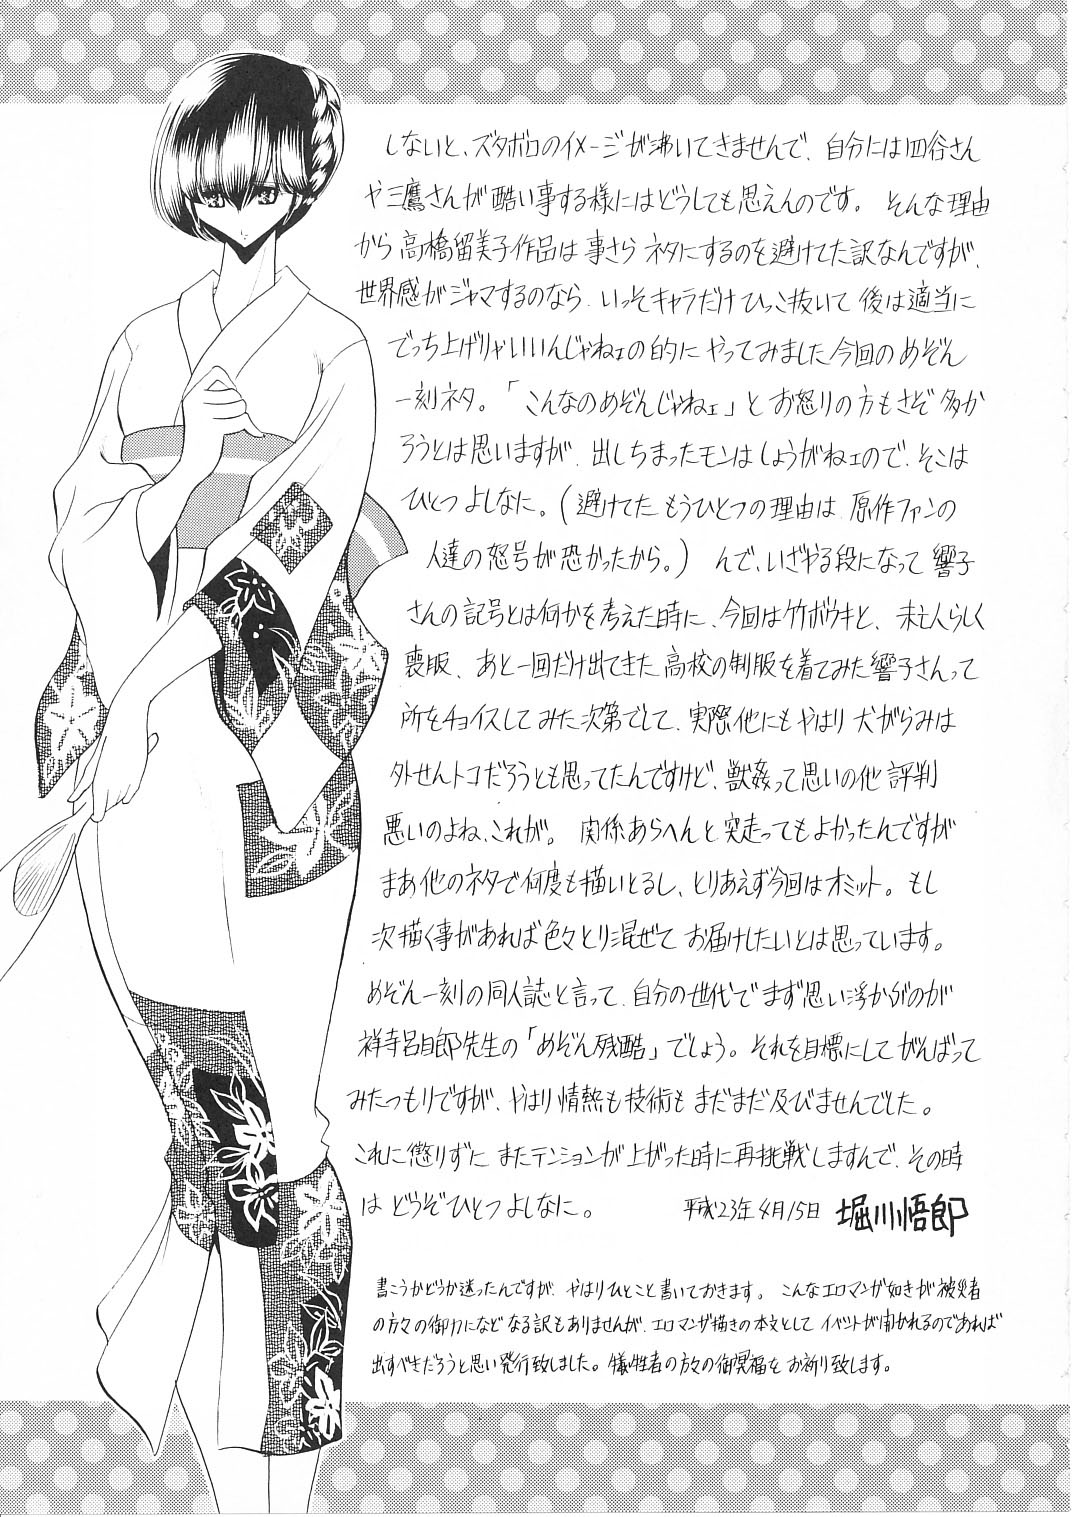 しないと、ズタボロのイメージが沸いてきませんで、自分には四谷さん
や三鷹さんが酷い事する様にはどうしても思えんのです。そんな理由
から高橋留美子作品は事さらネタにするのを避けてた訳なんですが、
世界感がジャマするのなら、いっそキャラだけひっこ抜いて後は適当に
でっち上げりゃいいんじゃねェの的にやってみました今回のめぞん
一刻ネタ。「こんなのめぞんじゃねェ」とお怒りの方もさぞ多か
ろうとは思いますが、出しちまったモンはしょうがねェので、そこは
ひとつよしなに。(避けてたもうひとつの理由は、原作ファンの
人達の怒号が恐かったから。) んで、いざやる段になって響子
さんの記号とは何かを考えた時に、今回は竹ボウキと、未亡人らしく
喪服、あと一回だけ出てきた高校の制服を着てみた響子さんって
所をチョイスしてみた次第でして、実際他にもやはり犬がらみは
外せんトコだろうとも思ってたんですけど、獣姦って思いの他評判
悪いのよね、これが。関係あらへんと突走ってもよかったんですが
まあ他のネタで何度も描いとるし、とりあえず今回はオミット。もし
次描く事があれば色々とり混ぜてお届けしたいとは思っています。
めぞん一刻の同人誌と言って、自分の世代でまず思い浮かぶのが
祥寺呂自郎先生の「めぞん残酷」でしょう。それを目標にしてがんばって
みたつもりですが、やはり情熱も技術もまだまだ及びませんでした。
これに懲りずにまたテンションが上がった時に再挑戦しますんで、その時
はどうぞひとつよしなに。 平成23年4月15日 堀川悟郎
書こうかどうか迷ったんですが、やはりひとこと書いておきます。こんなエロマンガ如きが被災者
の方々の御力になどなる訳もありませんが、エロマンガ描きの本文としてイベントが開かれるのであれば
出すべきだろうと思い発行致しました。犠牲者の方々の御冥福をお祈り致します。